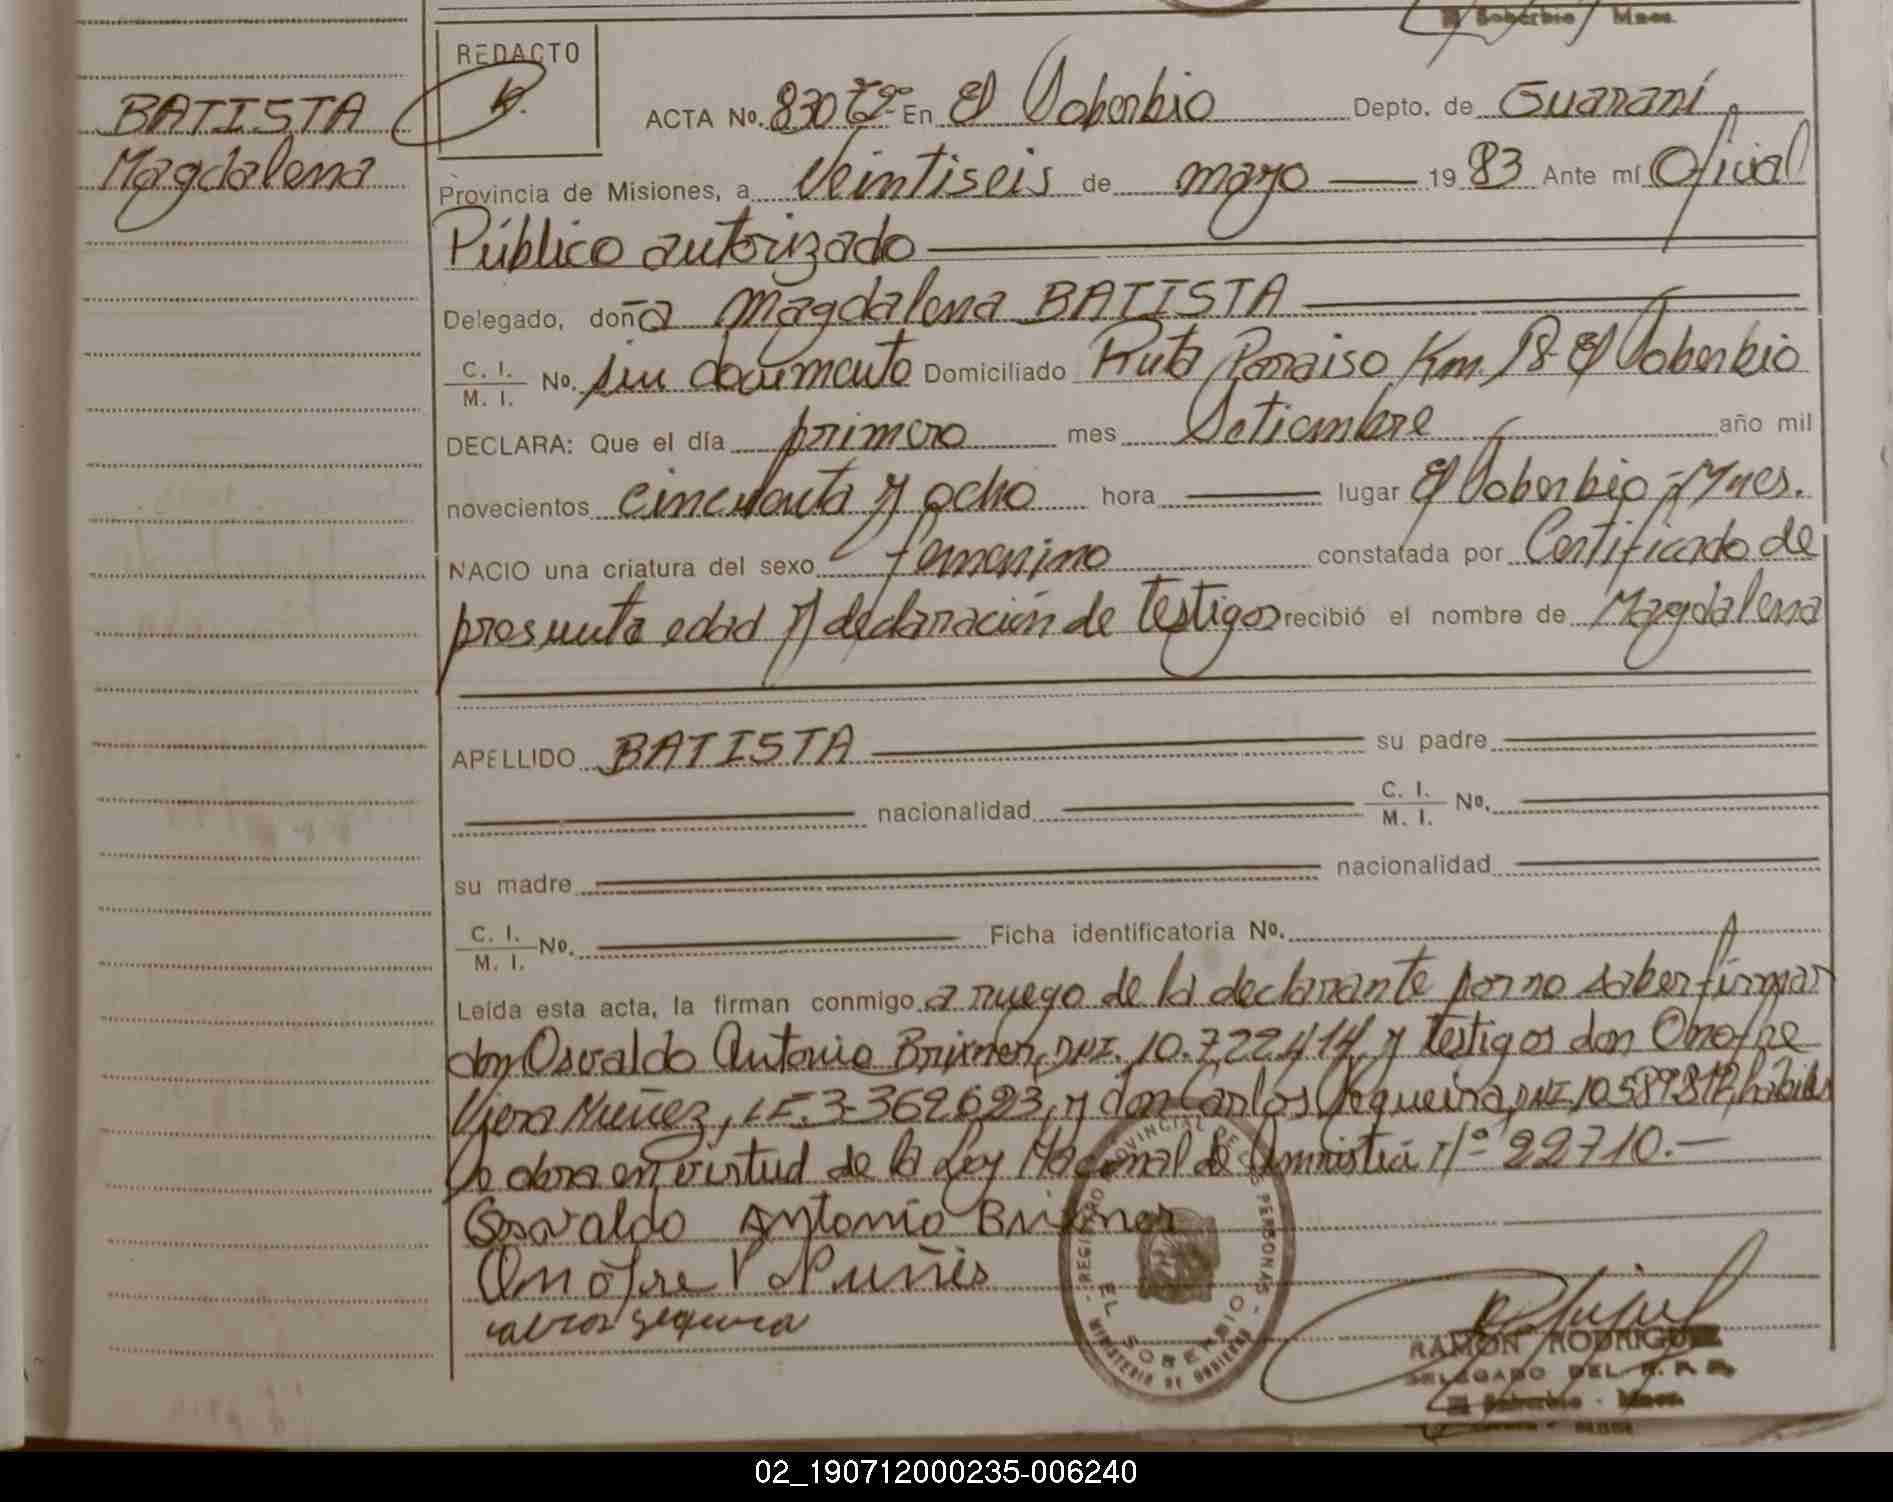 El Soberbio Mnes.
REDACTO
BATISTA
Magdalena
ACTA No. 830 Tº En El Soberbio Depto. de Guaraní
Provincia de Misiones, a Veintiseis de mayo 19 83 Ante mí Oficial
Público autorizado
Delegado, doña Magdalena BATISTA
C. I. / M. I. No. sin documento Domiciliado Ruta Paraiso Km. 18- El Soberbio
DECLARA: Que el día primero mes Setiembre año mil
novecientos cincuenta y ocho hora lugar El Soberbio - Mnes.
NACIO una criatura del sexo femenino constatada por Certificado de
presunta edad y declaración de testigos recibió el nombre de Magdalena
APELLIDO BATISTA su padre
nacionalidad C. I. / M. I. No.
su madre nacionalidad
C. I. / M. I. No. Ficha identificatoria No.
Leída esta acta, la firman conmigo a ruego de la declarante por no saber firmar
don Osvaldo Antonio Brixner, DNI. 10.722.414, y testigos don Onofre
Viera Nuñez, LE. 3.362.623, y don Carlos Sequeira, DNI. 10.589.812, habiles
Se obra en virtud de la Ley Nacional de Amnistia Nº 22710.-
Osvaldo Antonio Brixner
Onofre V Nuñes
carlos sequeira
REGISTRO PROVINCIAL DE LAS PERSONAS
EL SOBERBIO
MINISTERIO DE GOBIERNO
RAMON RODRIGUEZ
DELEGADO DEL R. P. P.
El Soberbio - Mnes.
02_190712000235-006240